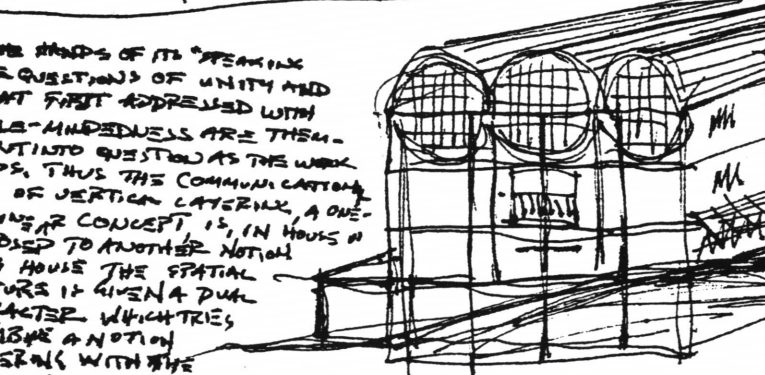 HE HANDS OF ITS "SPEAKING
E QUESTIONS OF UNITY AND
AT FIRST ADDRESSED WITH
LE-MINDEDNESS ARE THEM-
UT INTO QUESTION AS THE WORK
DS. THUS THE COMMUNICATION
OF VERTICAL LAYERING, A ONE-
INEAR CONCEPT, IS, IN HOUSE
OSED TO ANOTHER NOTION
HOUSE THE SPATIAL
TURE IS GIVEN A DUAL
ACTER WHICH TRIES
A NOTION
ERING WITH THE